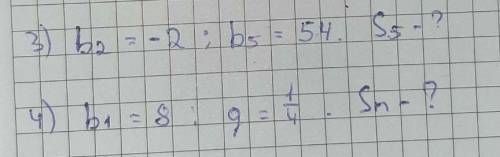 3) b₂ = -2 ; b₅ = 54. S₅ - ?
4) b₁ = 8 ; q = 1/4 . Sn - ?